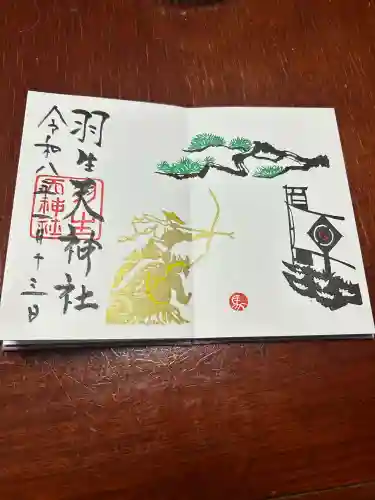 羽生天神社
令和八年一月十三日
羽生
天神社
馬